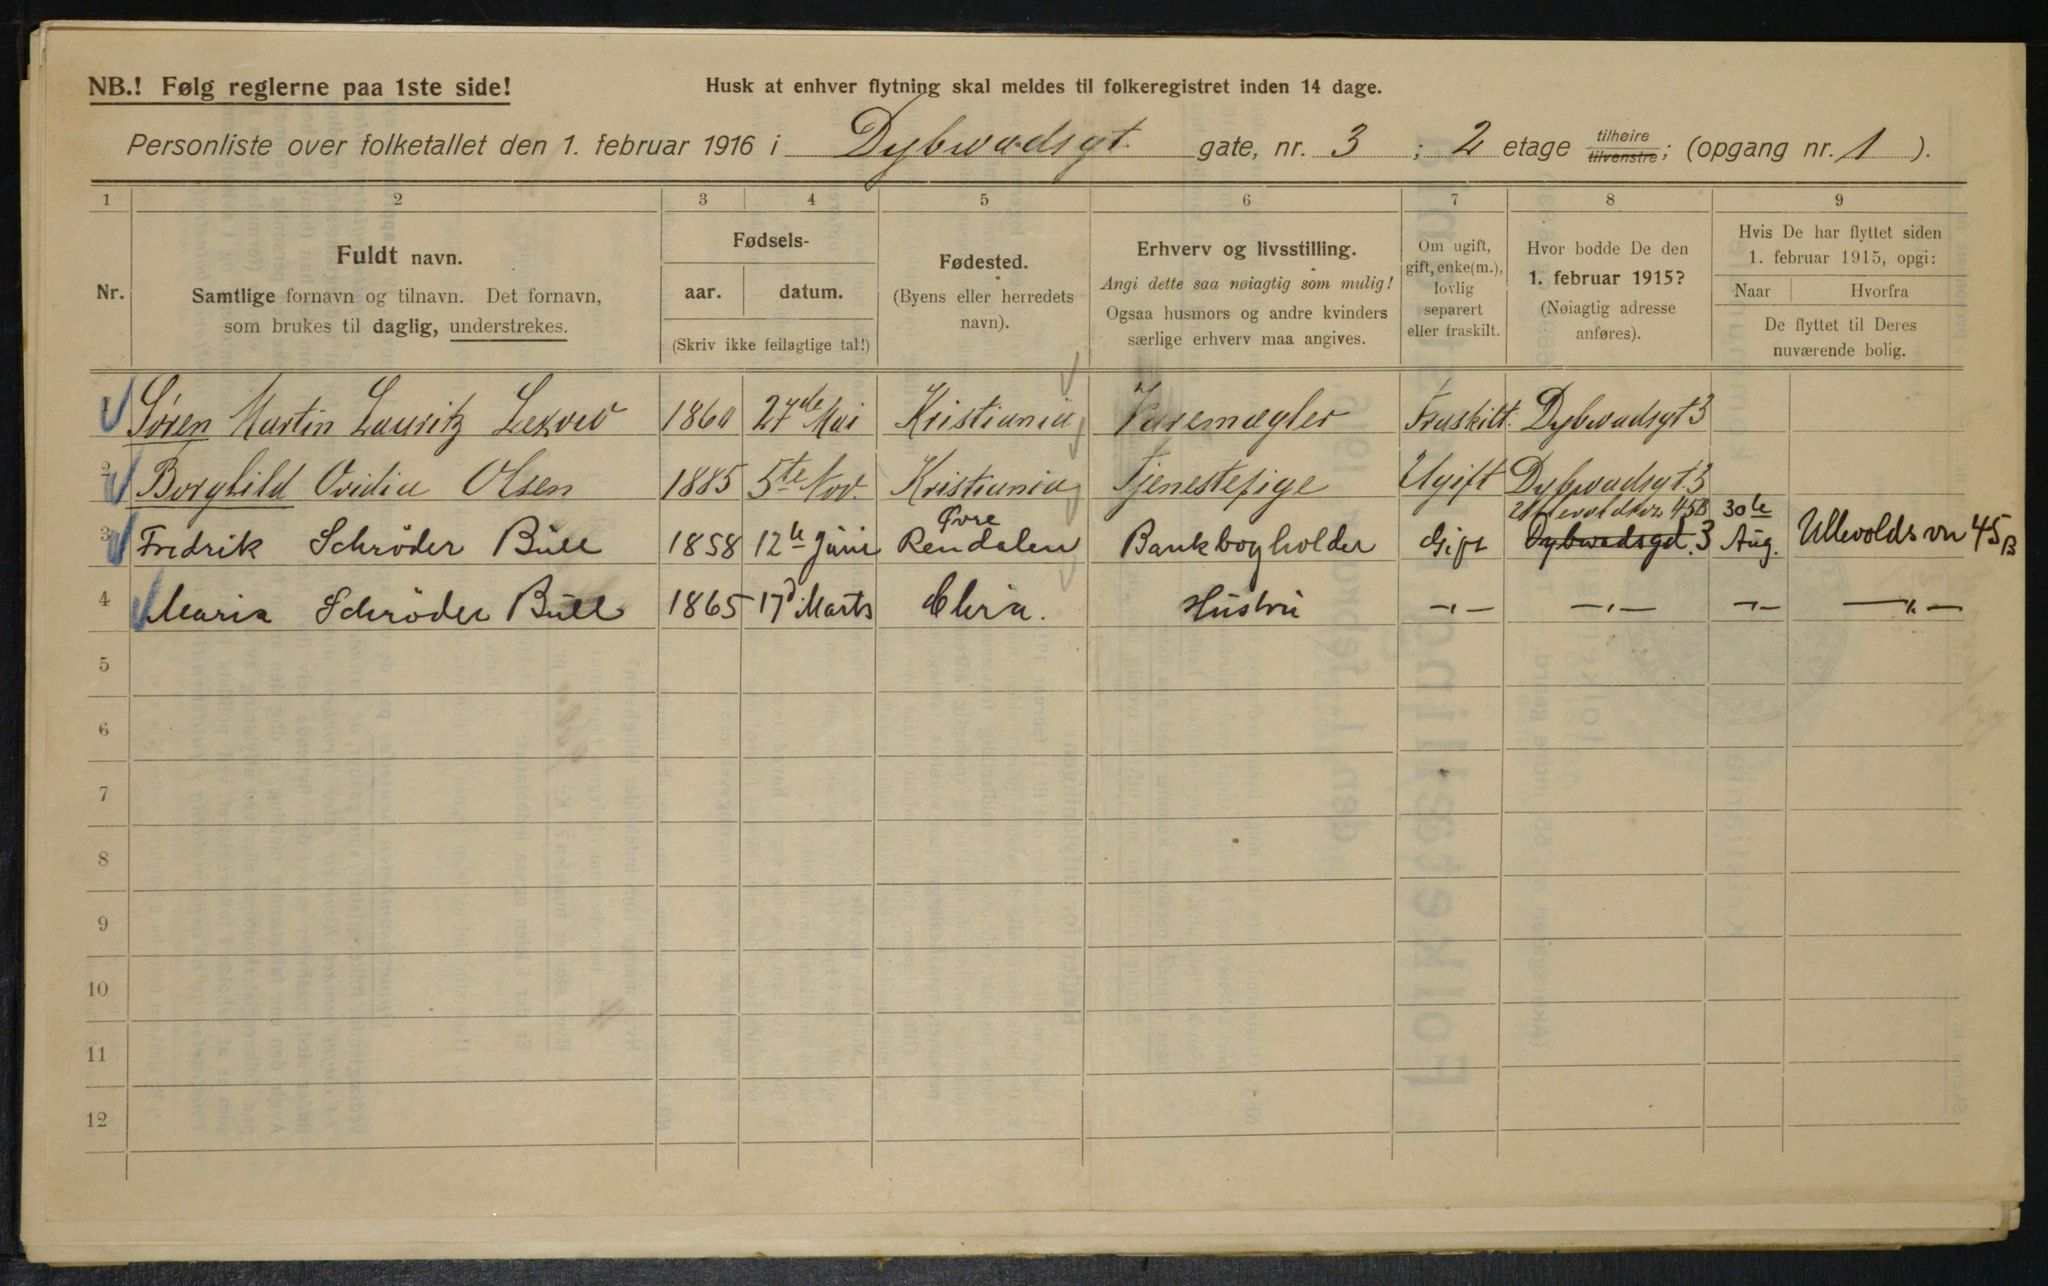 NB.! Følg reglerne paa 1ste side!
Husk at enhver flytning skal meldes til folkeregistret inden 14 dage.
Personliste over folketallet den 1. februar 1916 i Dybwadsgt. gate, nr. 3 ; 2 etage tilhøire tilvenstre; (opgang nr. 1 ).
1 2 3 4 5 6 7 8 9
Nr.
Fuldt navn.
Samtlige fornavn og tilnavn. Det fornavn,
som brukes til daglig, understrekes.
Fødsels-
aar. datum.
(Skriv ikke feilagtige tal!)
Fødested.
(Byens eller herredets
navn).
Erhverv og livsstilling.
Angi dette saa nøiagtig som mulig!
Ogsaa husmors og andre kvinders
særlige erhverv maa angives.
Om ugift,
gift, enke(m.),
lovlig
separert
eller fraskilt.
Hvor bodde De den
1. februar 1915?
(Nøiagtig adresse
anføres).
Hvis De har flyttet siden
1. februar 1915, opgi:
Naar Hvorfra
De flyttet til Deres
nuværende bolig.
Søren Martin Lauritz 1860 27de Mai Kristiania Varemægler Fraskilt. Dybwadsgt 3
2 Borghild Ovidia Olsen 1885 5te Nov. Kristiania Tjenestepige Ugift Dybwadsgt. 3
3 Fredrik Schrøder Bull 1858 12te Juni Øvre Rendalen Bankbogholder Gift Ullevoldsvn 45B Dybwadsgd. 3 30te Aug. Ullevoldsvn 45B
4 Maria Schrøder Bull 1865 17d Marts Chria. Hustru —„— —„— —„— —„—
5
6
7
8
9
10
11
12